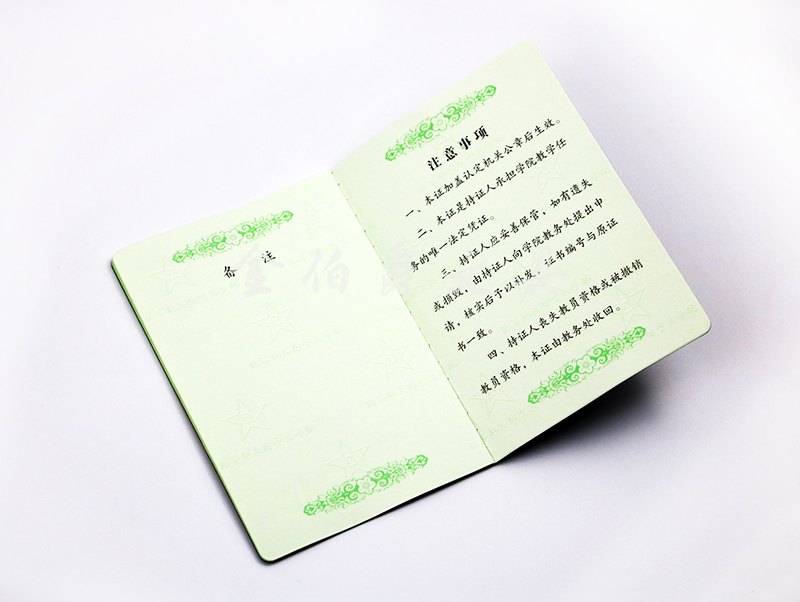 备 注
注意事项
一、本证加盖认定机关公章后生效。
二、本证是持证人承担学院教学任
务的唯一法定凭证。
三、持证人应妥善保管，如有遗失
或损毁，由持证人向学院教务处提出申
请，核实后予以补发，证书编号与原证
书一致。
四、持证人丧失教员资格或被撤销
教员资格，本证由教务处收回。
金伯爵